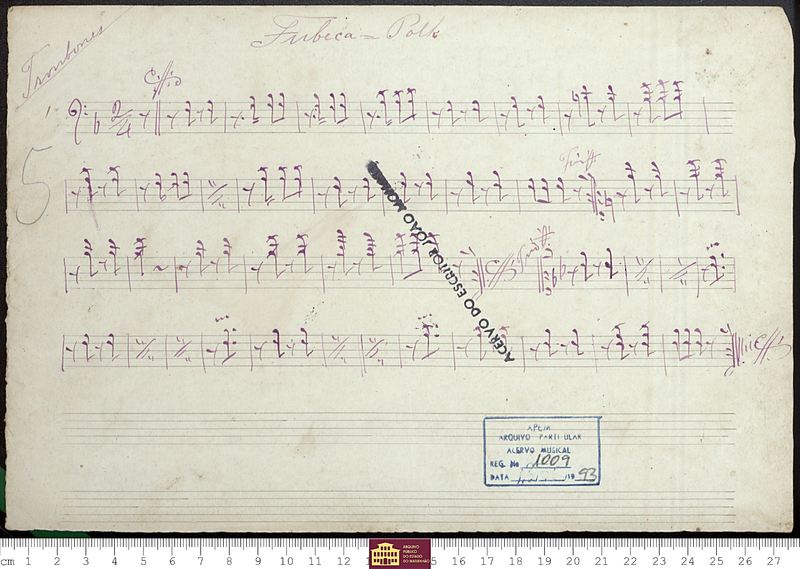 Trombones
Fubeca = Polk
2/4
5
ACERVO DO ESCRITOR JOÃO MO
APEM
ARQUIVO PARTICULAR
ACERVO MUSICAL
REG. No 1009
DATA / /19 93
ARQUIVO
PÚBLICO
DO ESTADO
DO MARANHÃO
cm 1 2 3 4 5 6 7 8 9 10 11 12 13 15 16 17 18 19 20 21 22 23 24 25 26 27